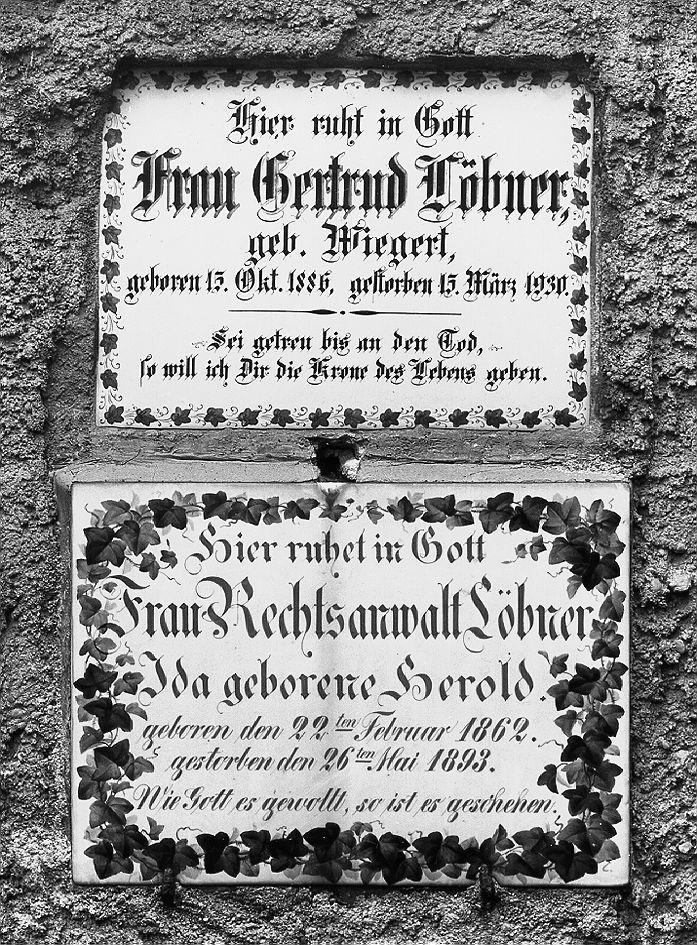 Hier ruht in Gott
Frau Gertrud Löbner,
geb. Wiegert,
geboren 15. Okt. 1886, gestorben 15. März 1930.
Sei getreu bis an den Tod,
so will ich Dir die Krone des Lebens geben.
Hier ruhet in Gott
Frau Rechtsanwalt Löbner
Ida geborene Herold.
geboren den 22ten Februar 1862.
gestorben den 26ten Mai 1893.
Wie Gott es gewollt, so ist es geschehen.